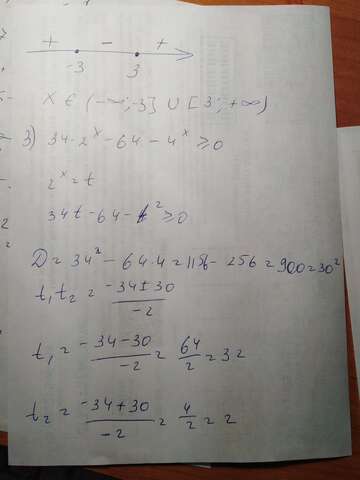 + - +
-3 3
x ∈ (-∞; -3] ∪ [3; +∞)
3) 34·2^x - 64 - 4^x ≥ 0
2^x = t
34t - 64 - t^2 ≥ 0
D = 34^2 - 64·4 = 1156 - 256 = 900 = 30^2
t₁,t₂ = (-34±30)/(-2)
t₁ = (-34-30)/(-2) = 64/2 = 32
t₂ = (-34+30)/(-2) = 4/2 = 2